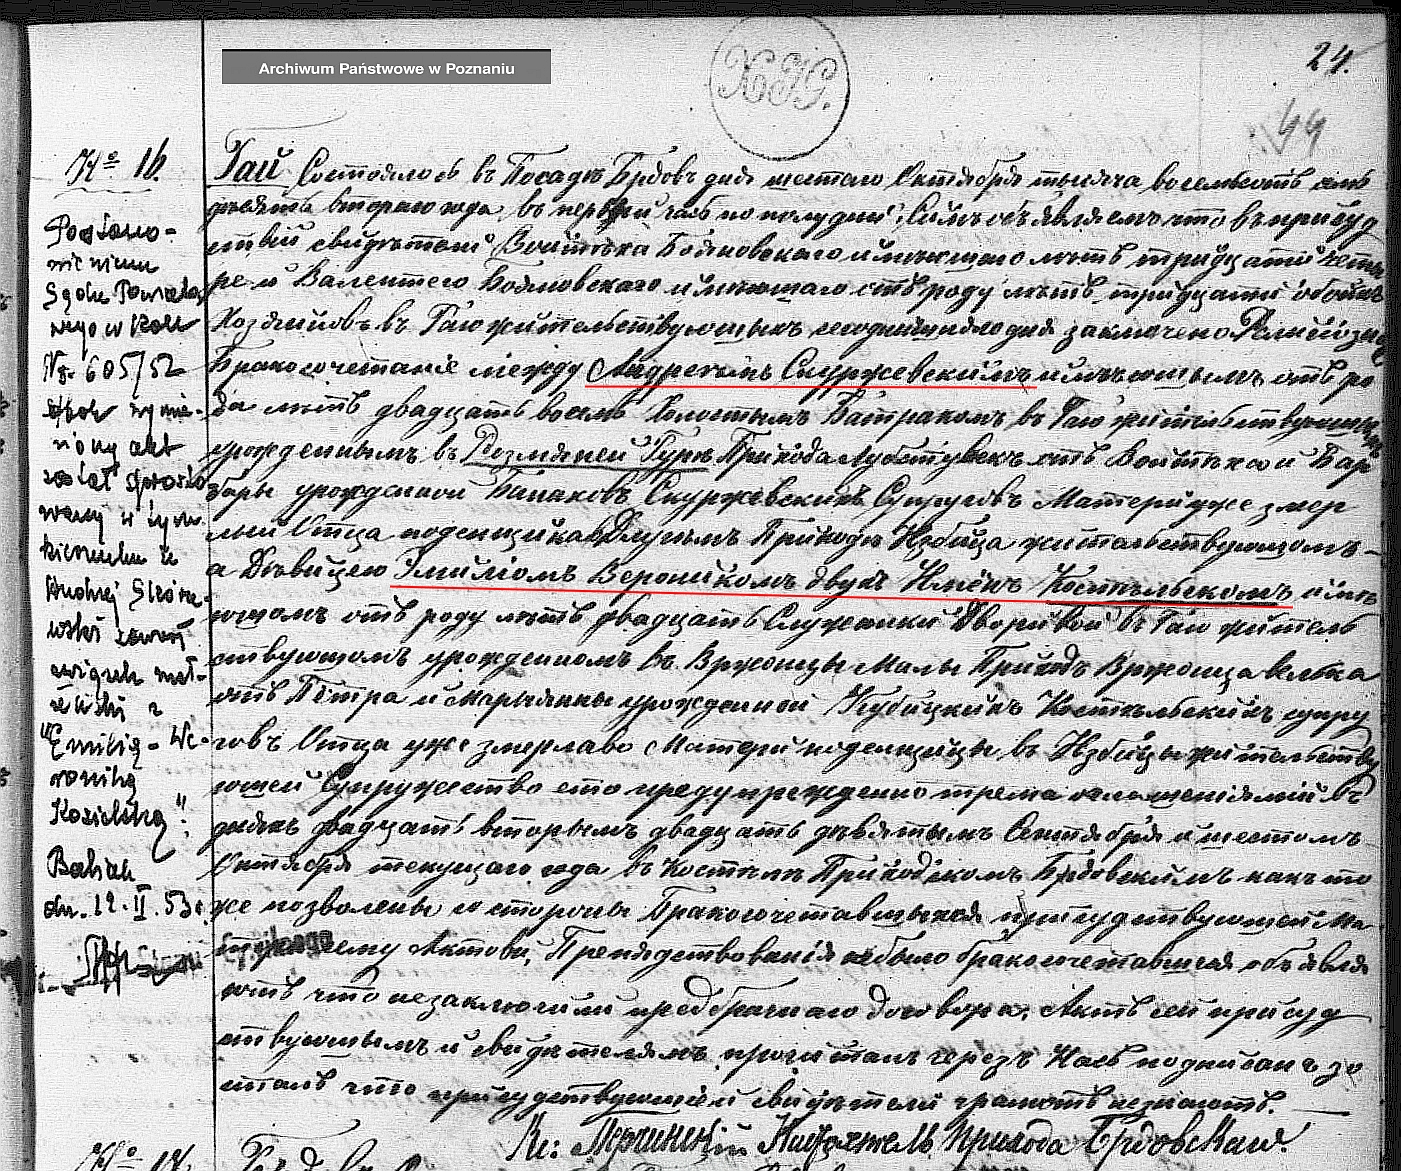 Archiwum Państwowe w Poznaniu
24.
44
№ 16.
Postano-
wieniem
Sądu Powiato
wego w Kole
Ns. 605/52
akt
został sprosto
wany w tym
kierunku że
Andrzej Skórze-
wski zawarł
związek mał-
żeński z
"Emilią - We-
roniką
Kosielską"
Babiak
dn. 12.II.53 r.
Гай Состоялось въ Посадѣ Брдовъ дня шестаго Октября тысяча восемьсотъ семь
десятъ втораго года, въ первый часъ по полудни; Симъ объявляемъ что въ присуд
ствіи свидѣтелей Войтѣха Бояновскаго имѣющаго лѣтъ тридцати четы
ре и Валентего Бояновскаго имѣющаго отъ роду лѣтъ тридцати обоихъ
Хозяиновъ въ Гаю жительствующихъ сегодняшняго дня заключено Религіозное
Бракосочетаніе между Андреемъ Скуржевскимъ имѣющимъ отъ ро
да лѣтъ двадцать восемь Холостымъ Батракомъ въ Гаю жительствующимъ
урожденнымъ въ Гурѣ Прихода Любстувекъ отъ Войтѣха и Бар
бары урожденной Скуржевскихъ Супруговъ Матери уже змер
лый Отца поденщика въ Длугимъ Приходѣ Избица жительствующомъ —
а Дѣвицею Эмиліомъ Вероникомъ двухъ Имёнъ Костѣльскомъ имѣ
ющомъ отъ роду лѣтъ двадцать Служанки Дворной въ Гаю житель
ствующомъ урожденномъ въ Вржонцы Малы Приходъ Вржонца велка
отъ Пётра и Марыянны урожденной Кубицкихъ Костѣльскихъ супру
говъ Отца уже змерлаво Матери поденщицы въ Избицы жительству
ющей Супружество ето предупреждено трема оглашеніямы въ
дняхъ двадцать вторымъ двадцать девятымъ Сентября и шестомъ
Октября текущаго года въ Костѣлѣ Приходскомъ Брдовскимъ какъ то
же позволены со стороны Бракосочетавшихся присудствующей Ма
тери сему Актови, Препядствованія не было бракосочетавшіеся объявля
ютъ что незаключили предбрачнаго договора. Актъ сей присуд
ствующымъ и свидѣтелямъ прочитанъ черезъ Насъ подписанъ зо
сталъ что присудствующіей свидѣтели грамотѣ незнаютъ. —
Кс: Настоятель прихода Брдовская.